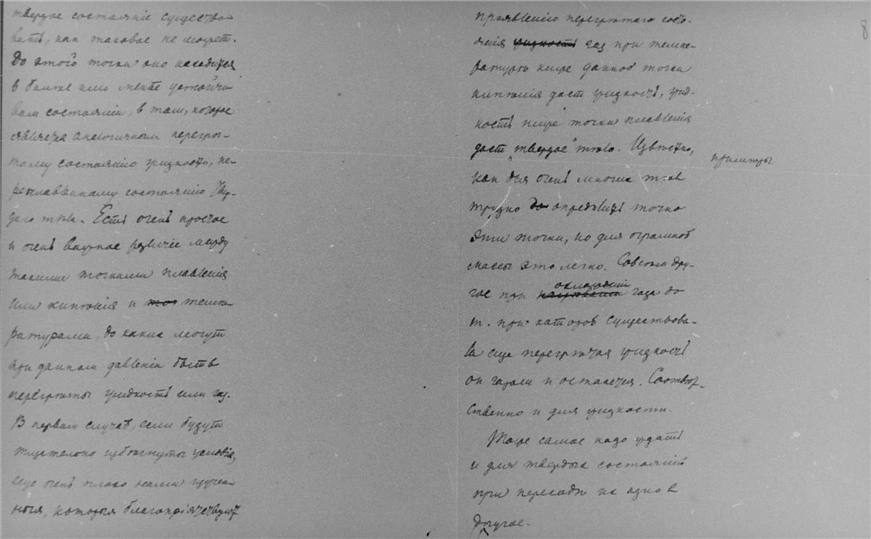 твердое состояніе существо-
вать, как таковое не может.
До этого точки оно находится
в более или менѣе устойчи-
вом состояніи, в том, которое
является аналогичным перегрѣ-
тому состоянію жидкости, пе-
реплавленному состоянію твер-
даго тѣла. Есть очень простое
и очень важное различіе между
такими точками плавленія
или кипѣнія и темпе-
ратурами, до каких могут
при данном давленіи быть
перегрѣты жидкость или газ.
В первом случаѣ, если будут
тщательно избѣгнуты условія,
еще очень плохо нами изучен-
ныя, которыя благопріятствуют
проявленію перегрѣтаго состо-
янія жидкость газ при темпе-
ратурѣ ниже данной точки
кипѣнія даст жидкость, жид-
кость ниже точки плавленія
даст "твердое" тѣло. Извѣстно,
примѣры
как для очень многих тѣл
трудно до опредѣлить точно
эти точки, но для огромной
массы это легко. Совсѣм дру-
гое при нагрѣваніи охлажденіи газа до
т. при которой существова-
ла еще перегрѣтая жидкость
он газом и останется. Соотвѣт-
ственно и для жидкости.
Тоже самое надо ждать
и для твердых состояній
при переходѣ из одно в
другое.
8